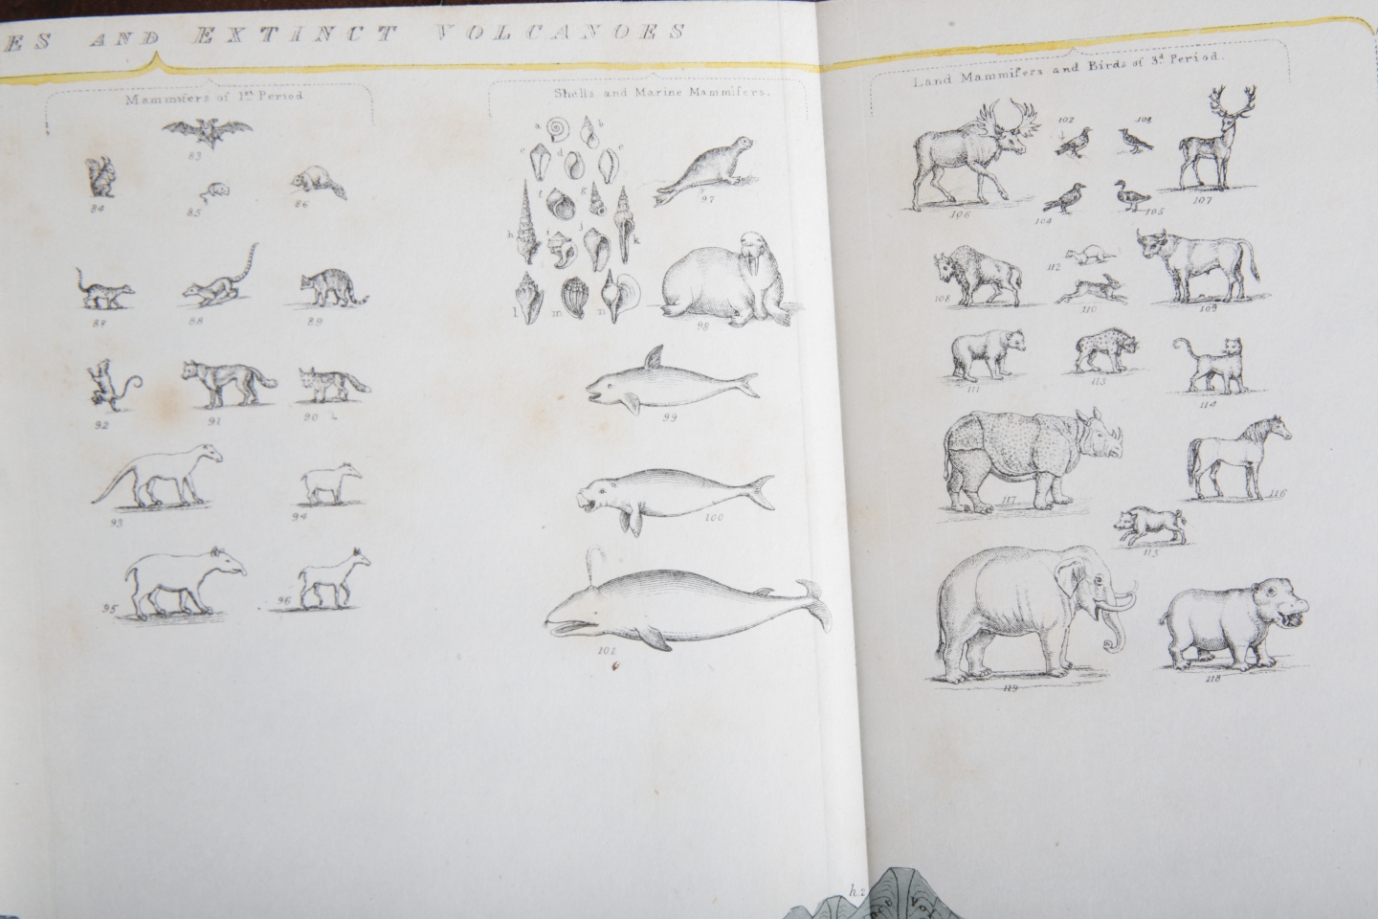 ES AND EXTINCT VOLCANOES
Mammifers of 1st Period
83
84
85
86
87
88
89
92
91
90
93
94
95
96
Shells and Marine Mammifers.
a
b
c
d
e
f
g
h
i
j
k
l
m
n
97
98
99
100
101
Land Mammifers and Birds of 3d Period.
106
102
104
105
107
108
112
110
109
111
113
114
117
116
115
119
118
h.2